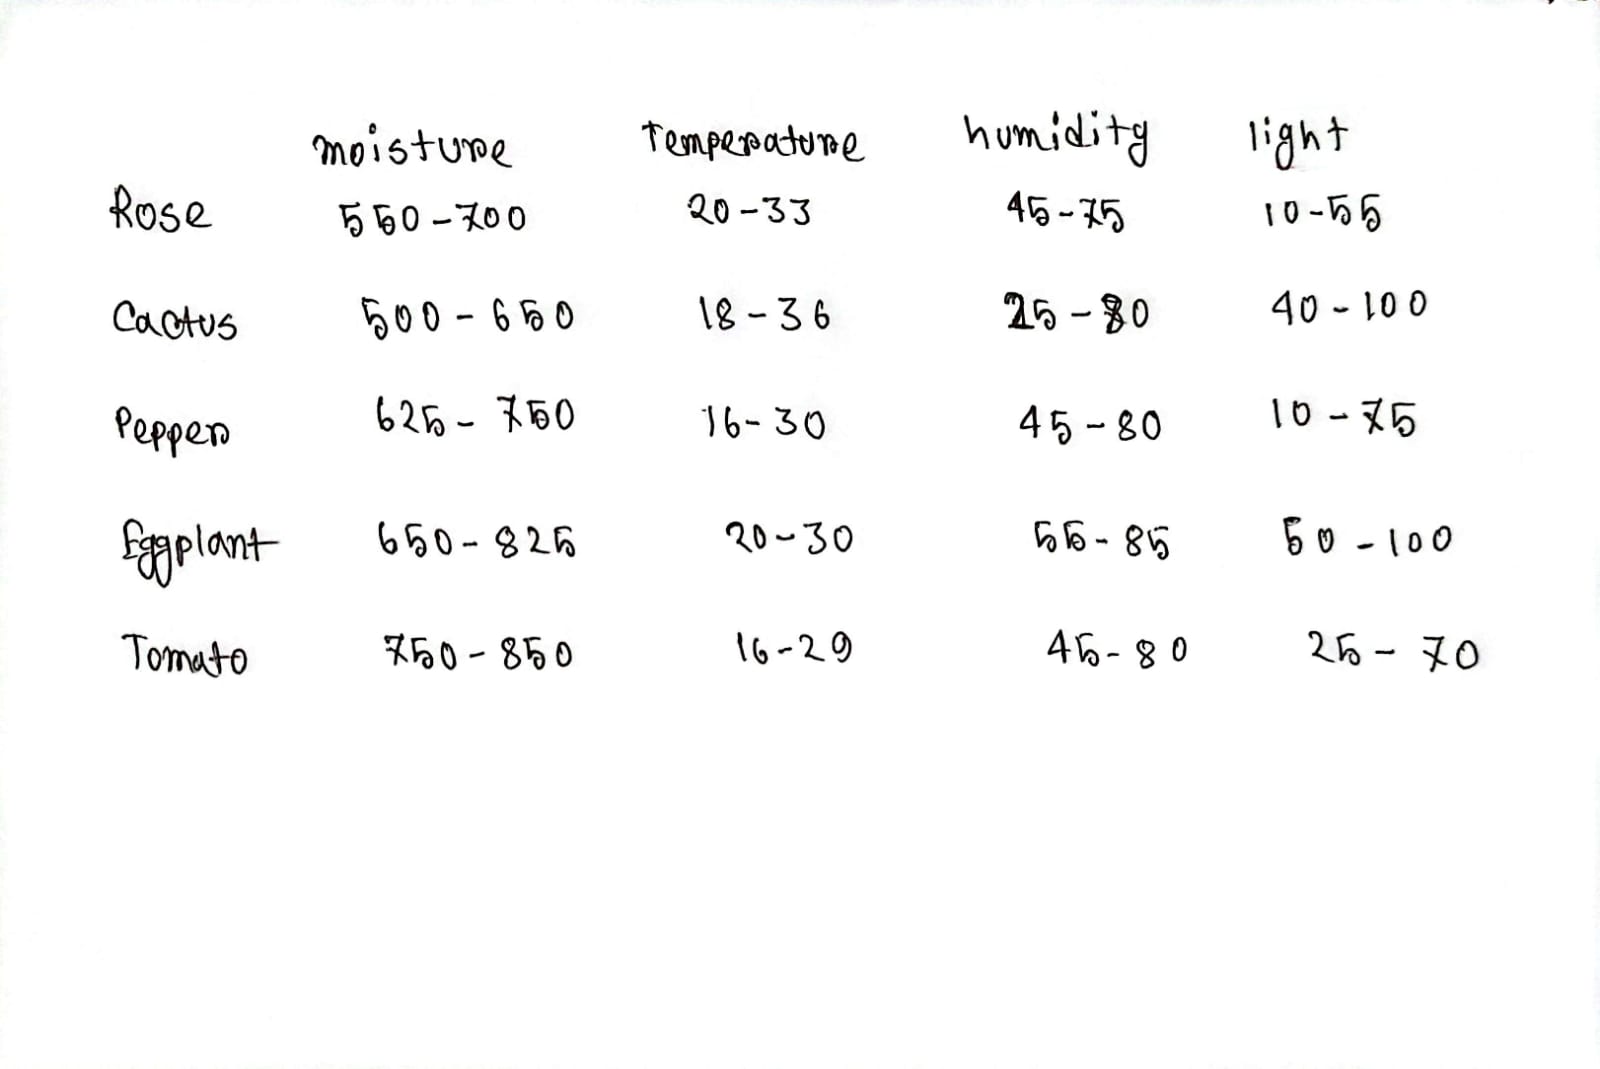 moisture Temperature humidity light
Rose 550-700 20-33 45-75 10-55
Cactus 500-650 18-36 25-80 40-100
Pepper 625-750 16-30 45-80 10-75
Eggplant 650-825 20-30 55-85 50-100
Tomato 750-850 16-29 45-80 25-70